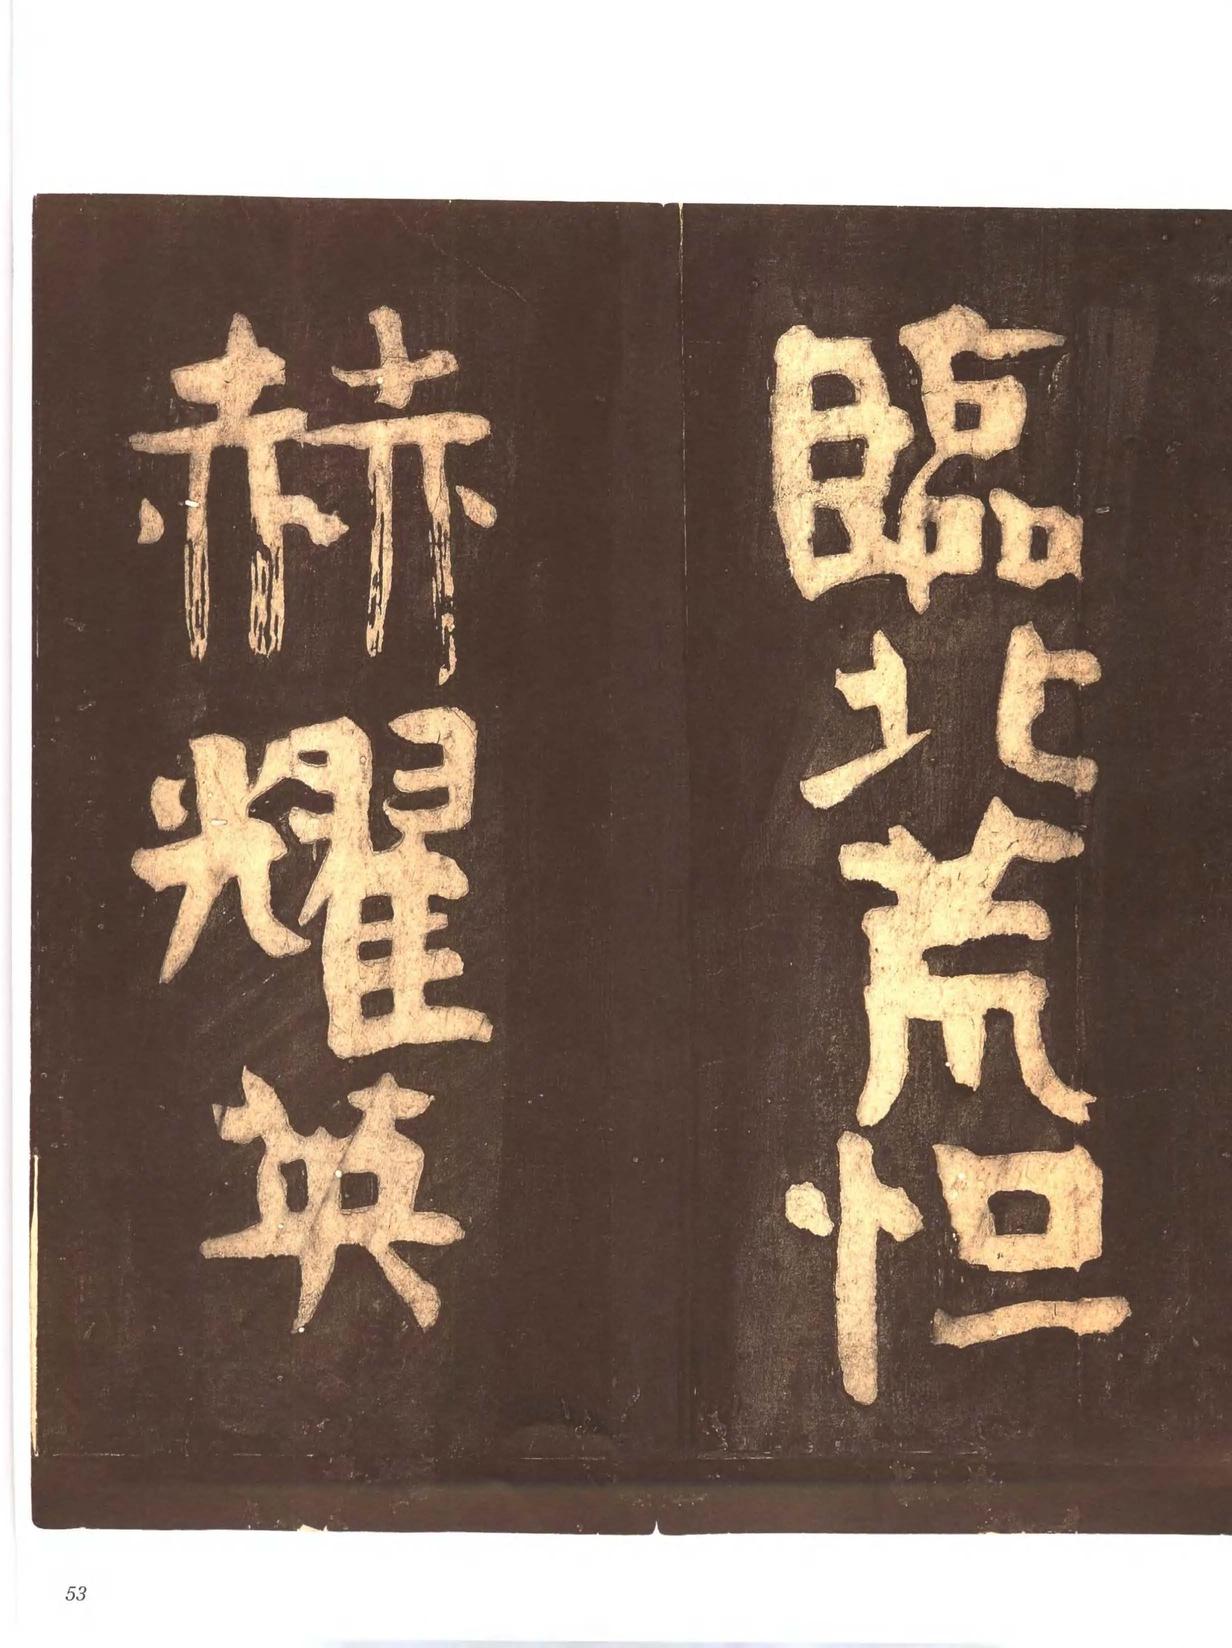 臨北荒恒
赫耀英
53